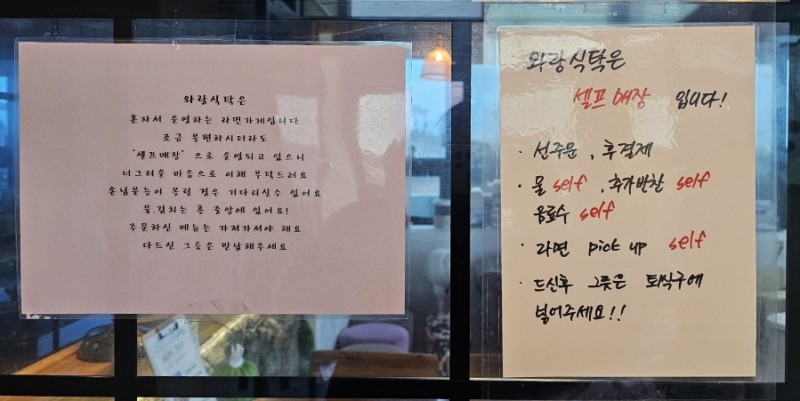 와랑식탁은
혼자서 운영하는 라면가게입니다
조금 불편하시더라도
"셀프매장" 으로 운영되고 있으니
너그러운 마음으로 이해 부탁드려요
손님분들이 몰릴 경우 기다리실수 있어요
물,김치는 홀 중앙에 있어요!
주문하신 메뉴는 가져가셔야 해요
다드신 그릇은 반납해주세요
와랑식탁은
셀프매장 입니다!
· 선주문, 후결제
· 물 self, 추가반찬 self
음료수 self
· 라면 pick up self
· 드신후 그릇은 퇴식구에
넣어주세요!!